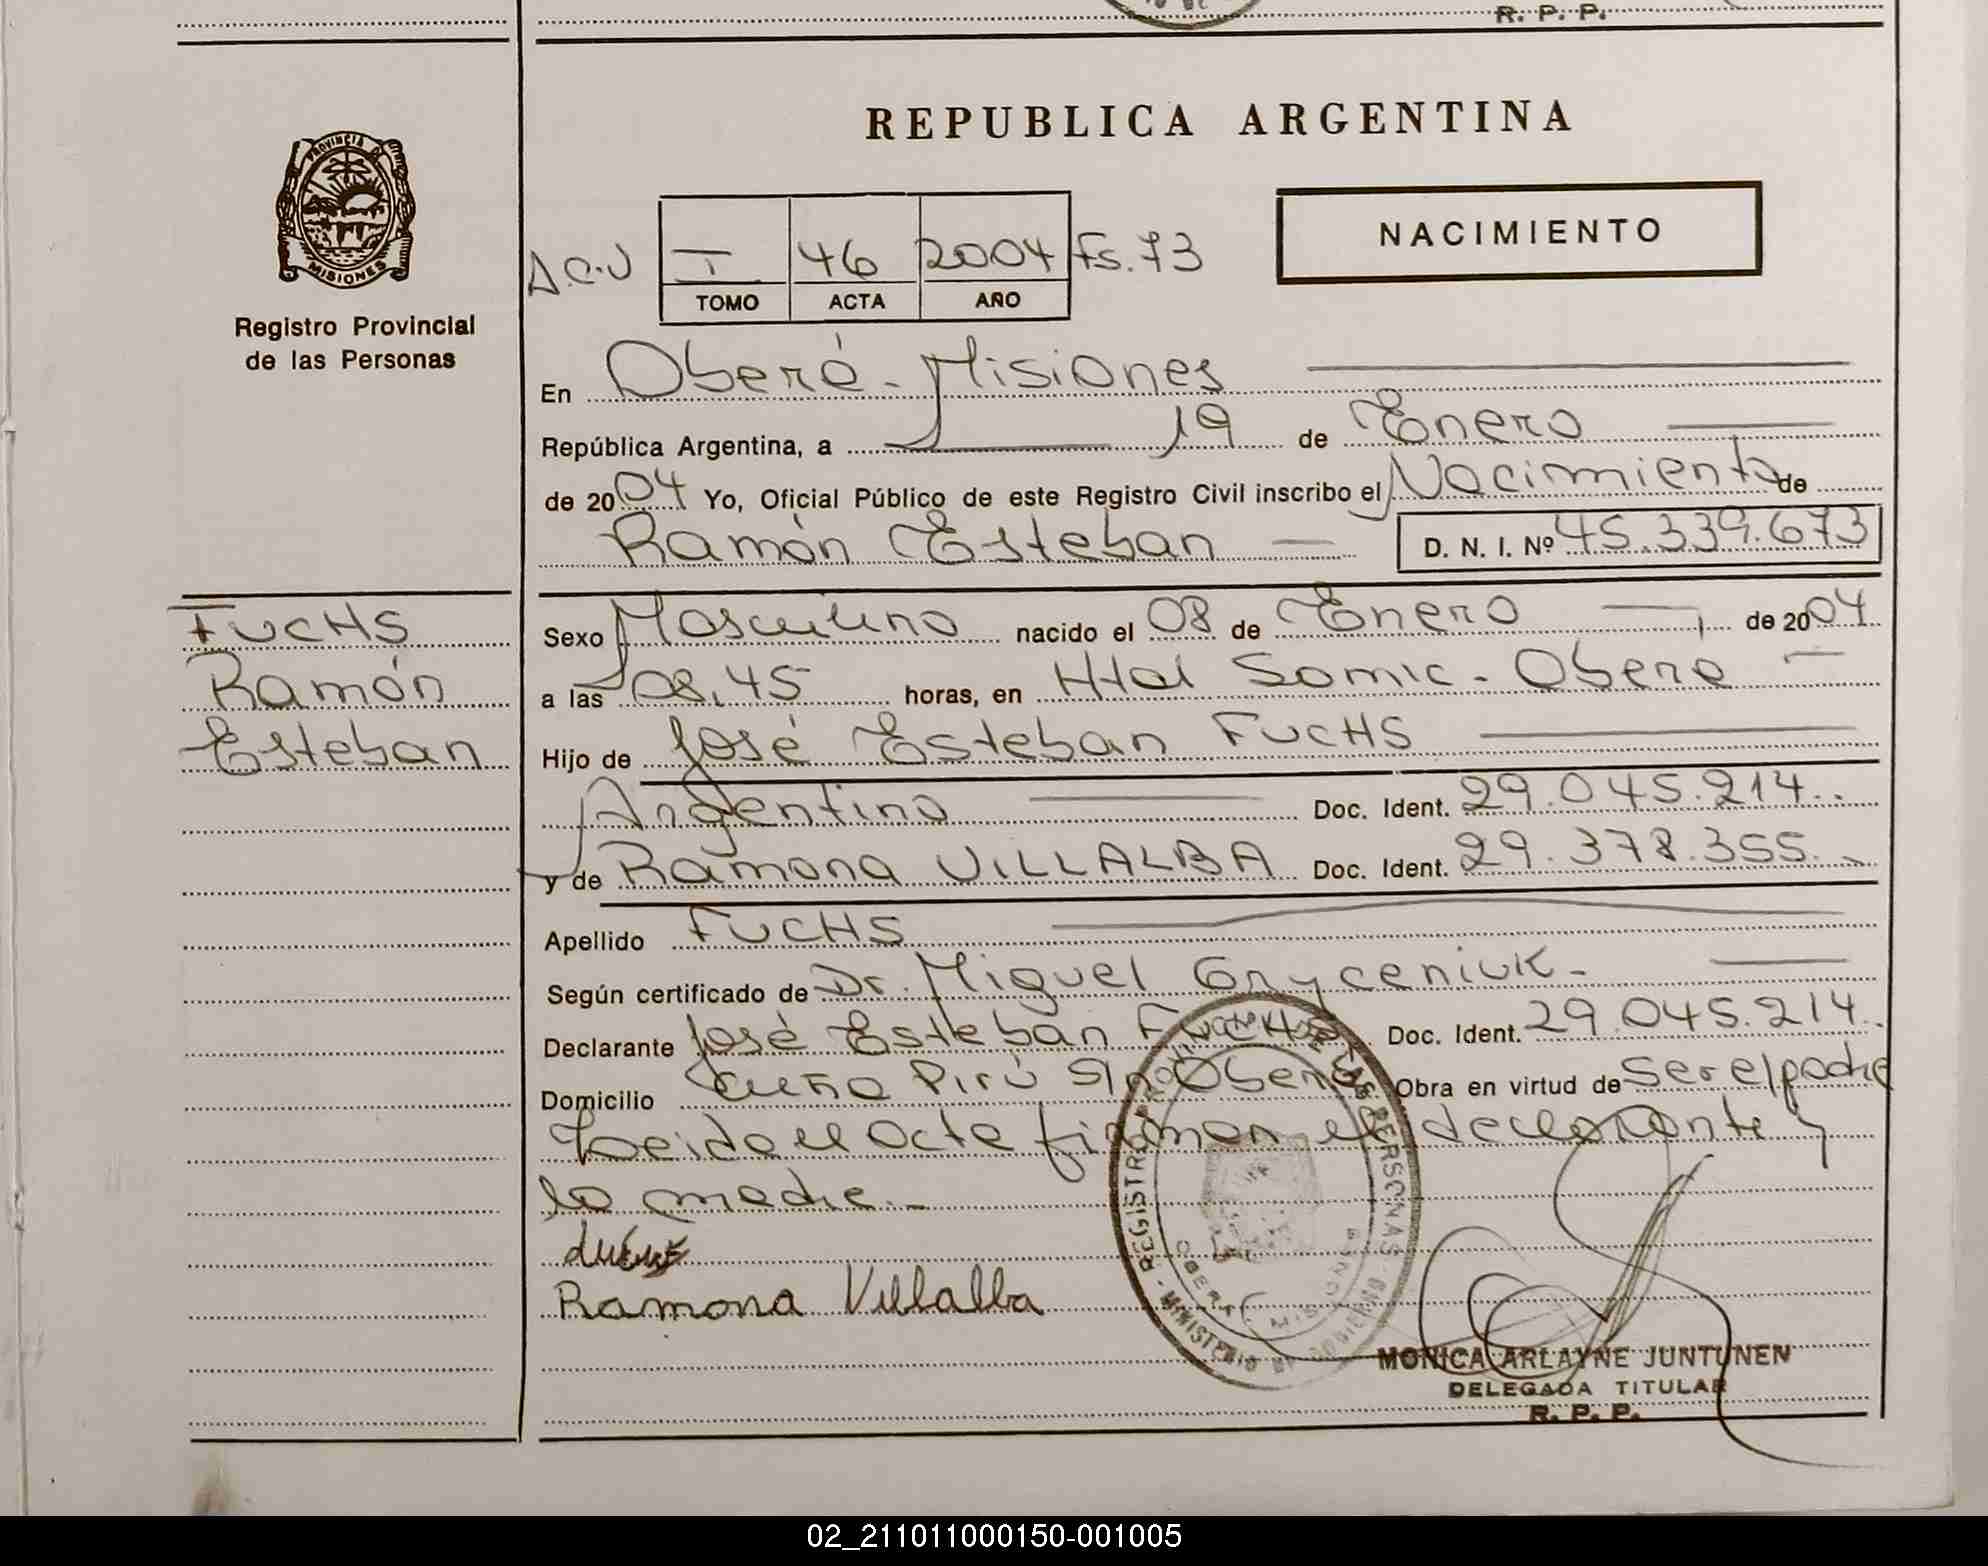 R. P. P.
PROVINCIA DE
MISIONES
Registro Provincial
de las Personas
REPUBLICA ARGENTINA
NACIMIENTO
I 46 2004 Fs. 73
TOMO ACTA AÑO
En Oberá - Misiones
República Argentina, a 19 de Enero
de 2004 Yo, Oficial Público de este Registro Civil inscribo el Nacimiento de
Ramón Esteban D. N. I. Nº 45.339.673
FUCHS
Ramón
Esteban
Sexo Masculino nacido el 08 de Enero de 2004
a las 08,45 horas, en Htal Samic - Oberá
Hijo de José Esteban FUCHS
Argentino Doc. Ident. 29.045.214.
y de Ramona VILLALBA Doc. Ident. 29.378.355.
Apellido FUCHS
Según certificado de Dr. Miguel Gryceniuk -
Declarante José Esteban FUCHS Doc. Ident. 29.045.214.
Domicilio Cuña Pirú S/n Oberá Obra en virtud de Ser el padre
Leida el acta firman el declarante y
la madre.-
Ramona Villalba
REGISTRO PROVINCIAL DE LAS PERSONAS - MINISTERIO DE GOBIERNO
OBERA MISIONES
MONICA ARLAYNE JUNTUNEN
DELEGADA TITULAR
R. P. P.
02_211011000150-001005